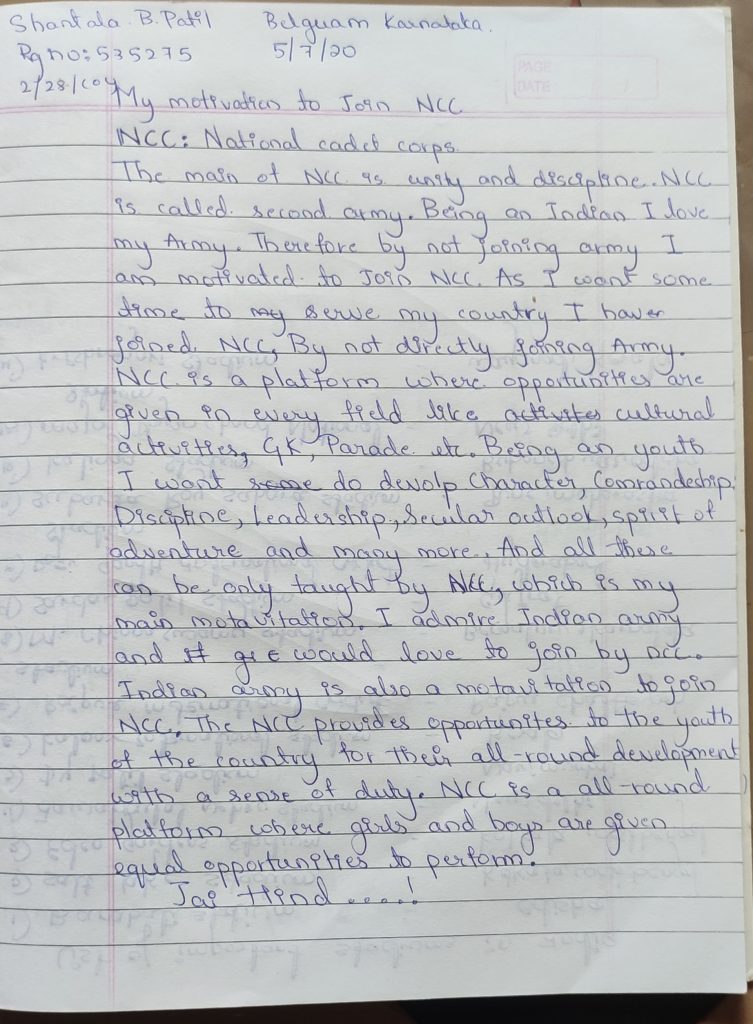 Shantala. B. Patil Belguam Karnataka.
Rg no: 535275 5/7/20
PAGE
DATE
My motivation to Join NCC
NCC: National cadet corps.
The main of NCC is unity and discipline. NCC
is called. second army. Being an Indian I love
my Army. Therefore by not joining army I
am motivated. to Join NCC. As I want some
time to my serve my country I haver
joined. NCC, By not directly joining Army.
NCC. is a platform where opportunities are
given in every field like activites cultural
activities, GK, Parade. etc. Being an youth
I want some do devolp Character, Comrandeship,
Discipline, Leadership, Secular outlook, spirit of
adventure and many more.. And all these
can be only taught by NCC, which is my
main motavitation. I admire Indian army
and it would love to join by ncc.
Indian army is also a motavitation to join
NCC. The NCC provides opportunites to the youth
of the country for their all-round development
with a sense of duty. NCC is a all-round
platform where girls and boys are given
equal opportunities to perform.
Jai Hind .....!